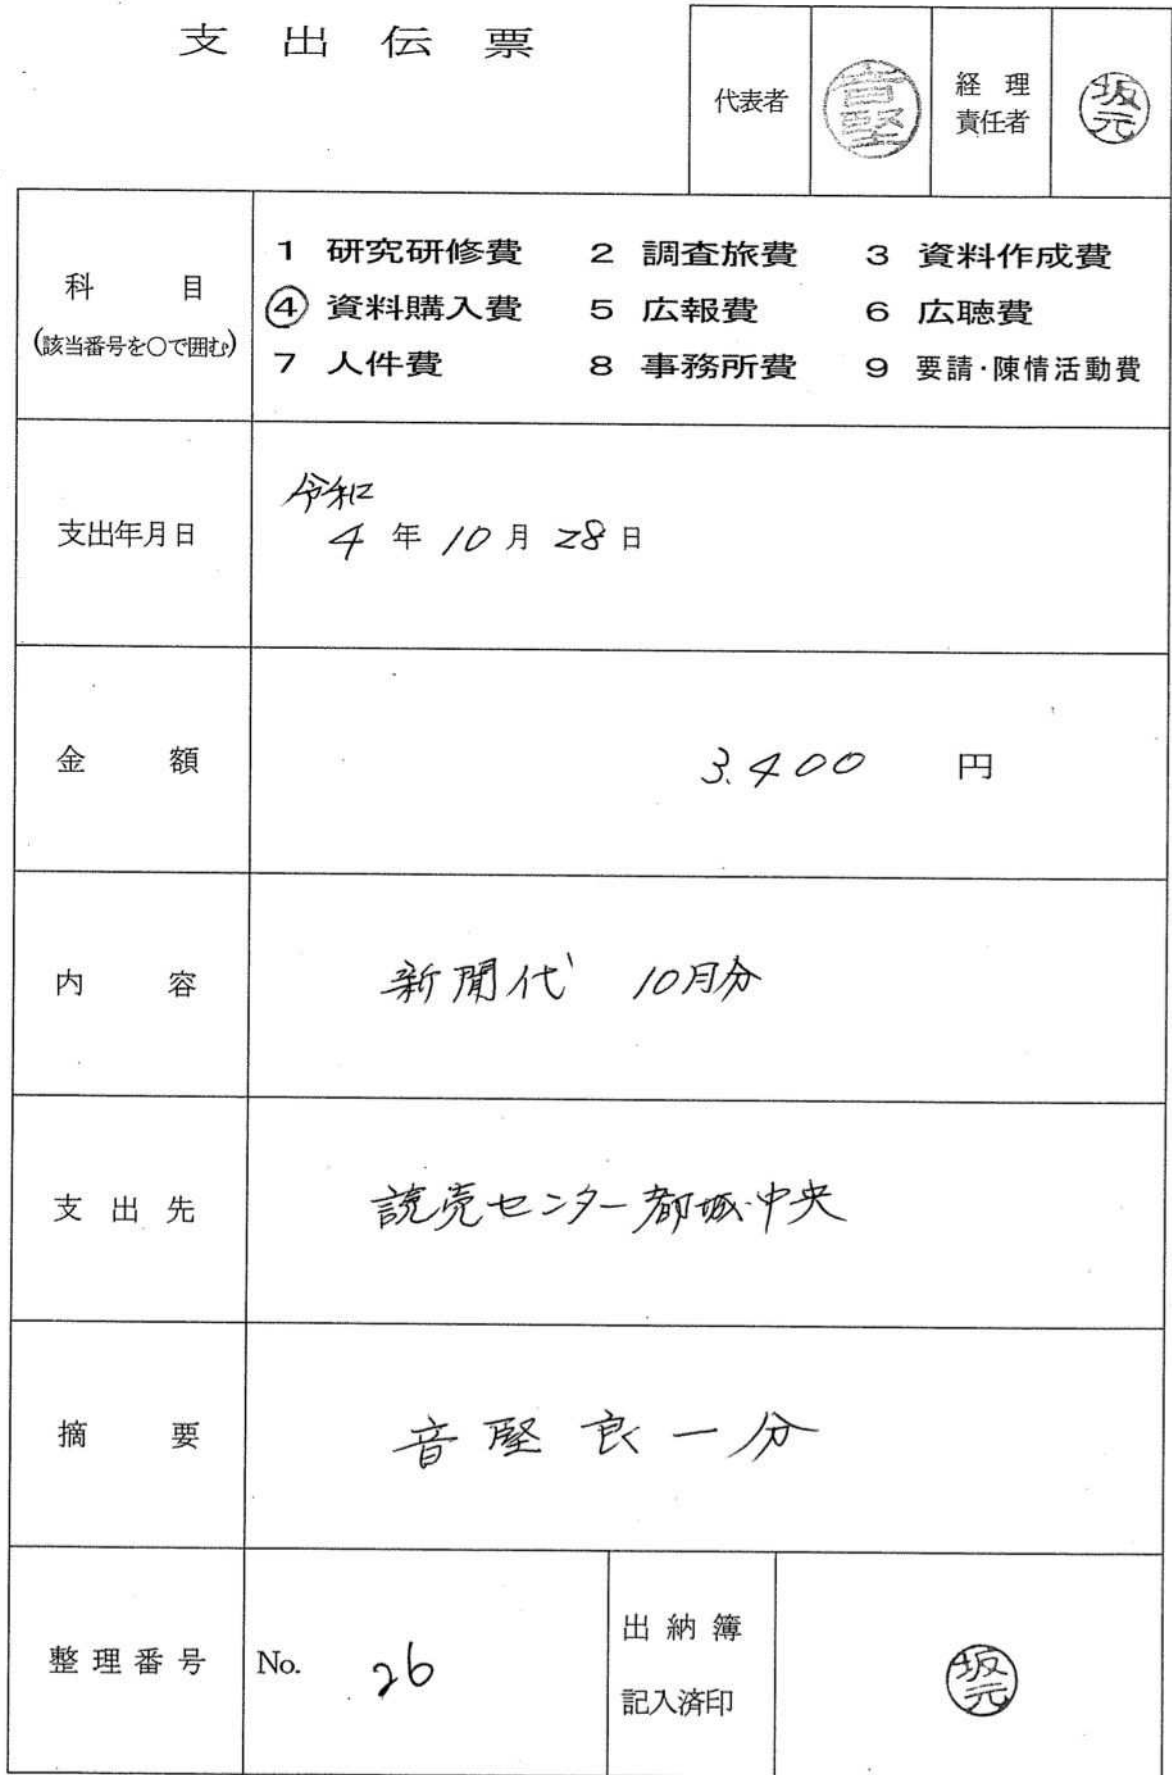 支出伝票
代表者
音堅
経理
責任者
坂元
科目
(該当番号を○で囲む)
1 研究研修費 2 調査旅費 3 資料作成費
④ 資料購入費 5 広報費 6 広聴費
7 人件費 8 事務所費 9 要請・陳情活動費
支出年月日
令和
4年10月28日
金額
3.400 円
内容
新聞代 10月分
支出先
読売センター都城中央
摘要
音堅良一分
整理番号
No. 26
出納簿
記入済印
坂元